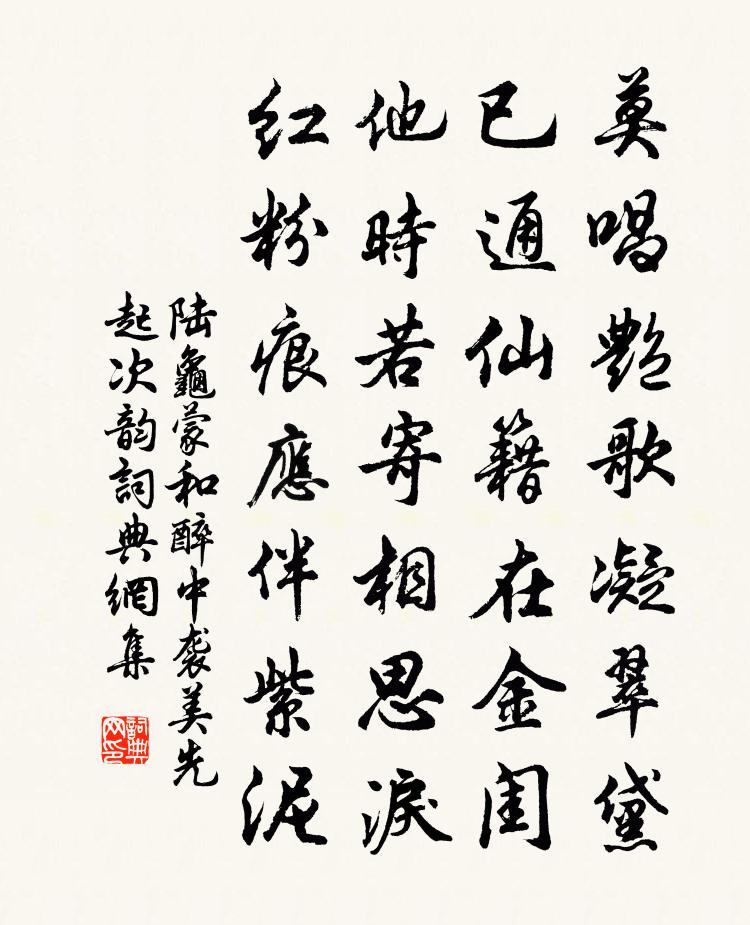 莫唱艷歌凝翠黛
已通仙籍在金闺
他時若寄相思淚
红粉痕應伴紫泥
陆龜蒙和醉中袭美先
起次韵詞典網集
詞典网印